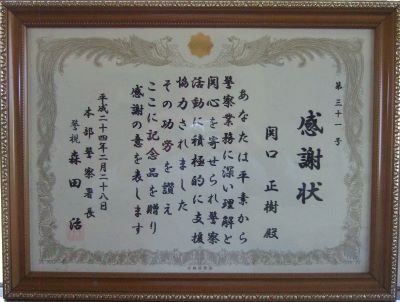 第三十一号
感謝状
関口正樹殿
あなたは平素から
警察業務に深い理解と
関心を寄せられ警察
活動に積極的に支援
協力されました
その功労を讃え
ここに記念品を贈り
感謝の意を表します
平成二十四年二月二十八日
本部警察署長
警視 森田 活